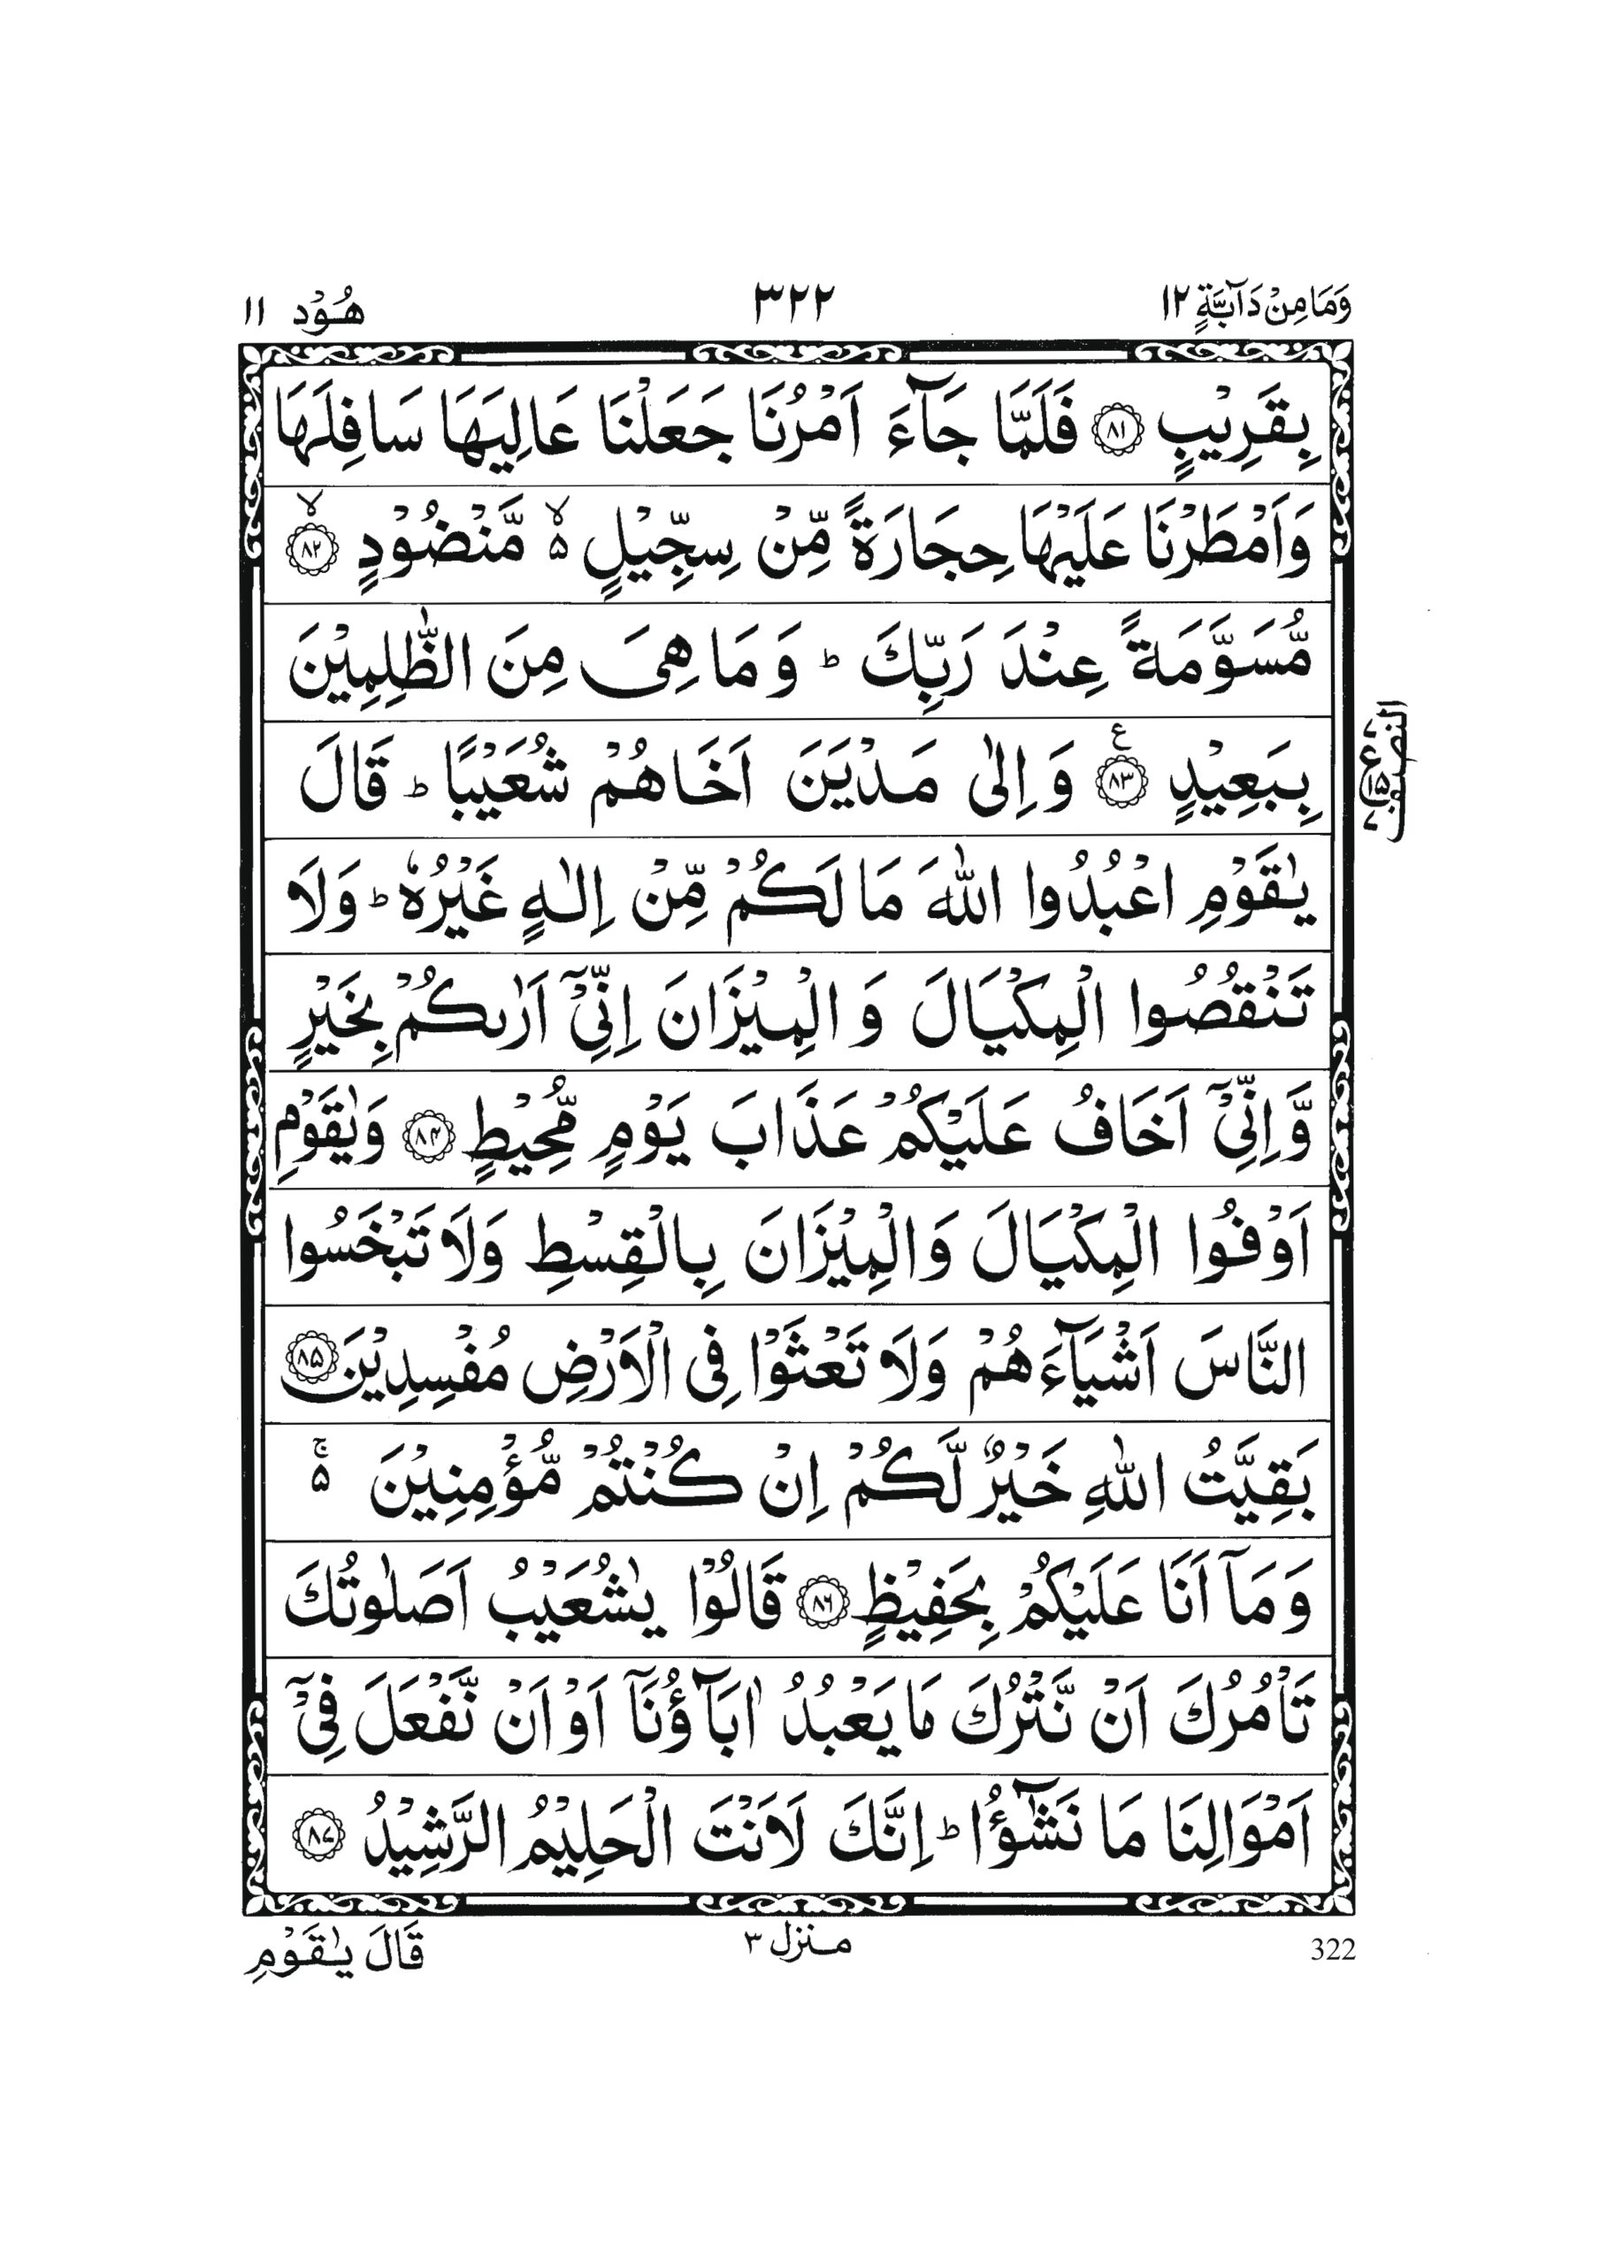 وَمَا مِنْ دَآبَّةٍ ١٢
٣٢٢
هُوْد ١١
بِقَرِيْبٍ ﴿٨١﴾ فَلَمَّا جَآءَ اَمْرُنَا جَعَلْنَا عَالِيَهَا سَافِلَهَا
وَاَمْطَرْنَا عَلَيْهَا حِجَارَةً مِّنْ سِجِّيْلٍ ۵ۙ مَّنْضُوْدٍ ﴿٨٢﴾ۙ
مُّسَوَّمَةً عِنْدَ رَبِّكَ ؕ وَمَا هِىَ مِنَ الظّٰلِمِيْنَ
بِبَعِيْدٍ ﴿٨٣﴾ ع وَاِلٰى مَدْيَنَ اَخَاهُمْ شُعَيْبًا ؕ قَالَ
يٰقَوْمِ اعْبُدُوا اللّٰهَ مَا لَكُمْ مِّنْ اِلٰهٍ غَيْرُهٗ ؕ وَلَا
تَنْقُصُوا الْمِكْيَالَ وَالْمِيْزَانَ اِنِّىْۤ اَرٰىكُمْ بِخَيْرٍ
وَّاِنِّىْۤ اَخَافُ عَلَيْكُمْ عَذَابَ يَوْمٍ مُّحِيْطٍ ﴿٨٤﴾ وَيٰقَوْمِ
اَوْفُوا الْمِكْيَالَ وَالْمِيْزَانَ بِالْقِسْطِ وَلَا تَبْخَسُوا
النَّاسَ اَشْيَآءَهُمْ وَلَا تَعْثَوْا فِى الْاَرْضِ مُفْسِدِيْنَ ﴿٨٥﴾
بَقِيَّتُ اللّٰهِ خَيْرٌ لَّكُمْ اِنْ كُنْتُمْ مُّؤْمِنِيْنَ ۵ۚ
وَمَاۤ اَنَا عَلَيْكُمْ بِحَفِيْظٍ ﴿٨٦﴾ قَالُوْا يٰشُعَيْبُ اَصَلٰوتُكَ
تَاْمُرُكَ اَنْ نَّتْرُكَ مَا يَعْبُدُ اٰبَآؤُنَاۤ اَوْ اَنْ نَّفْعَلَ فِىْۤ
اَمْوَالِنَا مَا نَشٰٓؤُا ؕ اِنَّكَ لَاَنْتَ الْحَلِيْمُ الرَّشِيْدُ ﴿٨٧﴾
النصف
322
منزل ٣
قَالَ يٰقَوْمِ